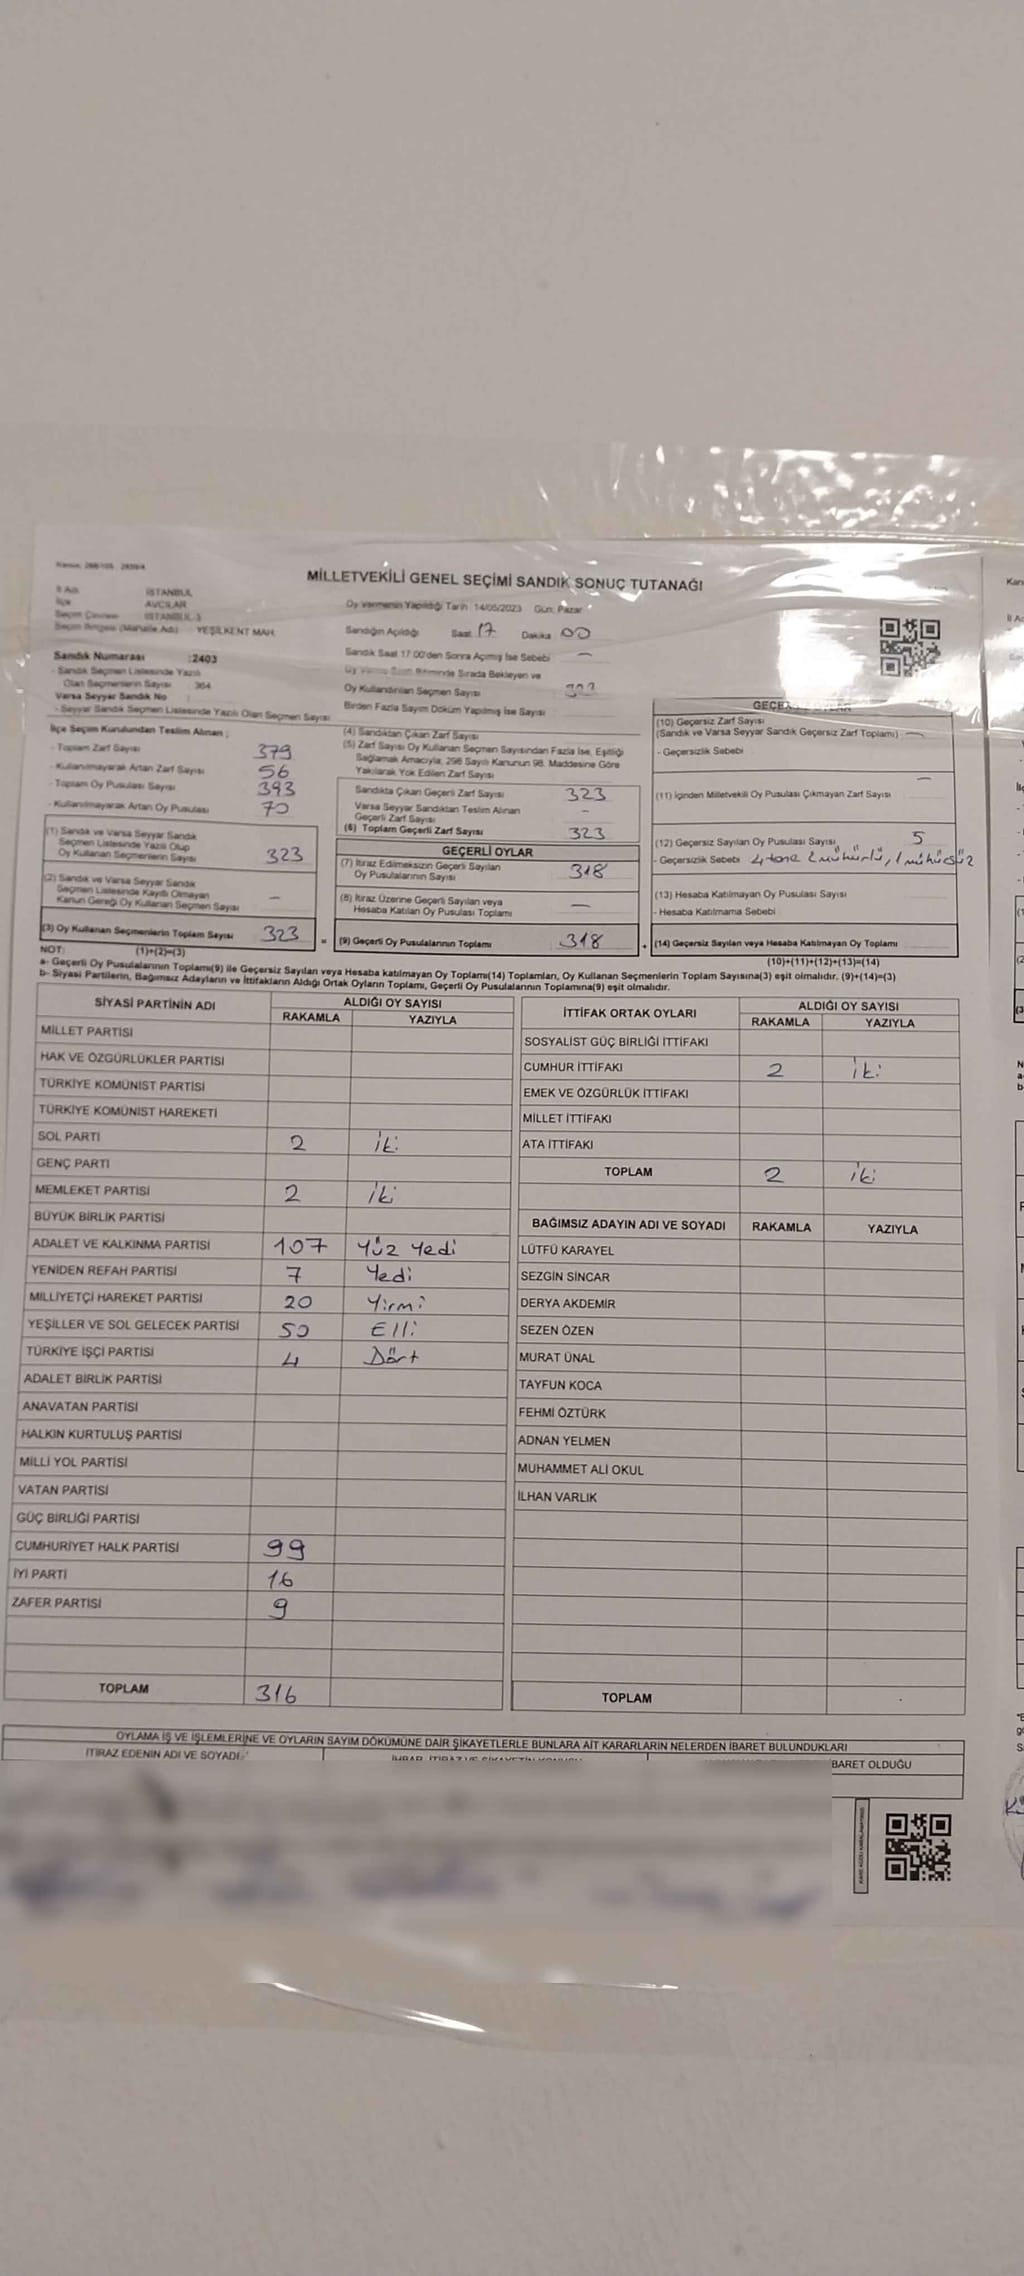 MİLLETVEKİLİ GENEL SEÇİMİ SANDIK SONUÇ TUTANAĞI
İl Adı İSTANBUL
İlçe AVCILAR
Seçim Çevresi İSTANBUL 3
Seçim Bölgesi (Mahalle Adı) YEŞİLKENT MAH.
Oy Vermenin Yapıldığı Tarih 14/05/2023 Gün: Pazar
Sandığın Açıldığı Saat 17 Dakika 00
Sandık Saat 17:00'den Sonra Açımış İse Sebebi —
Sırada Bekleyen ve
Oy Kullandırılan Seçmen Sayısı
Birden Fazla Sayım Döküm Yapılmış İse Sayısı
Sandık Numarası :2403
- Sandık Seçmen Listesinde Yazılı
Olan Seçmenlerin Sayısı 364
Varsa Seyyar Sandık No :
- Seyyar Sandık Seçmen Listesinde Yazılı Olan Seçmen Sayısı
İlçe Seçim Kurulundan Teslim Alınan ;
- Toplam Zarf Sayısı 379
- Kullanılmayarak Artan Zarf Sayısı 56
- Toplam Oy Pusulası Sayısı 393
- Kullanılmayarak Artan Oy Pusulası 70
(1) Sandık ve Varsa Seyyar Sandık
Seçmen Listesinde Yazılı Olup
Oy Kullanan Seçmenlerin Sayısı 323
(2) Sandık ve Varsa Seyyar Sandık
Seçmen Listesinde Kayıtlı Olmayan
Kanun Gereği Oy Kullanan Seçmen Sayısı —
(3) Oy Kullanan Seçmenlerin Toplam Sayısı 323
(1)+(2)=(3)
(4) Sandıktan Çıkan Zarf Sayısı
(5) Zarf Sayısı Oy Kullanan Seçmen Sayısından Fazla İse, Eşitliği
Sağlamak Amacıyla, 298 Sayılı Kanunun 98. Maddesine Göre
Yakılarak Yok Edilen Zarf Sayısı
Sandıkta Çıkan Geçerli Zarf Sayısı 323
Varsa Seyyar Sandıktan Teslim Alınan
Geçerli Zarf Sayısı -
(6) Toplam Geçerli Zarf Sayısı 323
GEÇERLİ OYLAR
(7) İtiraz Edilmeksizin Geçerli Sayılan
Oy Pusulalarının Sayısı 318
(8) İtiraz Üzerine Geçerli Sayılan veya
Hesaba Katılan Oy Pusulası Toplamı —
= (9) Geçerli Oy Pusulalarının Toplamı 318
(10) Geçersiz Zarf Sayısı
(Sandık ve Varsa Seyyar Sandık Geçersiz Zarf Toplamı) —
- Geçersizlik Sebebi
(11) İçinden Milletvekili Oy Pusulası Çıkmayan Zarf Sayısı —
(12) Geçersiz Sayılan Oy Pusulası Sayısı 5
- Geçersizlik Sebebi 4 tane 2 mühürlü, 1 mühürsüz
(13) Hesaba Katılmayan Oy Pusulası Sayısı
- Hesaba Katılmama Sebebi
+ (14) Geçersiz Sayılan veya Hesaba Katılmayan Oy Toplamı
(10)+(11)+(12)+(13)=(14)
NOT:
a- Geçerli Oy Pusulalarının Toplamı(9) ile Geçersiz Sayılan veya Hesaba katılmayan Oy Toplamı(14) Toplamları, Oy Kullanan Seçmenlerin Toplam Sayısına(3) eşit olmalıdır. (9)+(14)=(3)
b- Siyasi Partilerin, Bağımsız Adayların ve İttifakların Aldığı Ortak Oyların Toplamı, Geçerli Oy Pusulalarının Toplamına(9) eşit olmalıdır.
SİYASİ PARTİNİN ADI ALDIĞI OY SAYISI
RAKAMLA YAZIYLA
MİLLET PARTİSİ
HAK VE ÖZGÜRLÜKLER PARTİSİ
TÜRKİYE KOMÜNİST PARTİSİ
TÜRKİYE KOMÜNİST HAREKETİ
SOL PARTİ 2 iki
GENÇ PARTİ
MEMLEKET PARTİSİ 2 iki
BÜYÜK BİRLİK PARTİSİ
ADALET VE KALKINMA PARTİSİ 107 Yüz Yedi
YENİDEN REFAH PARTİSİ 7 Yedi
MİLLİYETÇİ HAREKET PARTİSİ 20 Yirmi
YEŞİLLER VE SOL GELECEK PARTİSİ 50 Elli
TÜRKİYE İŞÇİ PARTİSİ 4 Dört
ADALET BİRLİK PARTİSİ
ANAVATAN PARTİSİ
HALKIN KURTULUŞ PARTİSİ
MİLLİ YOL PARTİSİ
VATAN PARTİSİ
GÜÇ BİRLİĞİ PARTİSİ
CUMHURİYET HALK PARTİSİ 99
İYİ PARTİ 16
ZAFER PARTİSİ 9
TOPLAM 316
İTTİFAK ORTAK OYLARI ALDIĞI OY SAYISI
RAKAMLA YAZIYLA
SOSYALİST GÜÇ BİRLİĞİ İTTİFAKI
CUMHUR İTTİFAKI 2 iki
EMEK VE ÖZGÜRLÜK İTTİFAKI
MİLLET İTTİFAKI
ATA İTTİFAKI
TOPLAM 2 iki
BAĞIMSIZ ADAYIN ADI VE SOYADI RAKAMLA YAZIYLA
LÜTFÜ KARAYEL
SEZGİN SİNCAR
DERYA AKDEMİR
SEZEN ÖZEN
MURAT ÜNAL
TAYFUN KOCA
FEHMİ ÖZTÜRK
ADNAN YELMEN
MUHAMMET ALİ OKUL
İLHAN VARLIK
TOPLAM
OYLAMA İŞ VE İŞLEMLERİNE VE OYLARIN SAYIM DÖKÜMÜNE DAİR ŞİKAYETLERLE BUNLARA AİT KARARLARIN NELERDEN İBARET BULUNDUKLARI
İTİRAZ EDENİN ADI VE SOYADI
BARET OLDUĞU